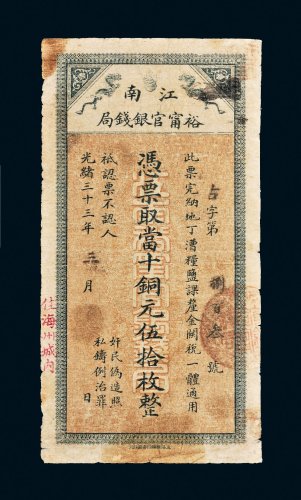 江南
裕甯官銀錢局
字第 捌百叁 號
此票完納地丁漕糧鹽課釐金關稅一體通用
憑票取當十銅元伍拾枚整
祗認票不認人
光緒三十三年 三 月 日
奸民偽造照
私鑄例治罪
住海州城內